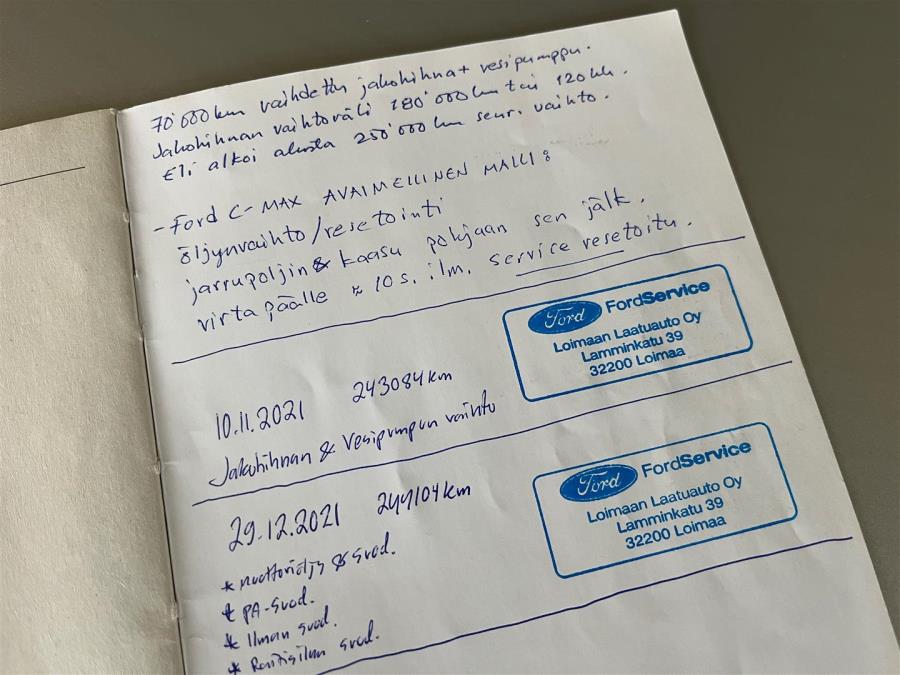 70'000km vaihdettu jakohihna+ vesipumppu.
Jakohihnan vaihtoväli 180'000km tai 120kk.
Eli alkoi alusta 250'000km seur. vaihto.
- Ford C-MAX AVAIMELLINEN MALLI:
öljynvaihto/resetointi
jarrupoljin & kaasu pohjaan sen jälk.
virta päälle ≈ 10 s. ilm. service resetoitu.
Ford FordService
Loimaan Laatuauto Oy
Lamminkatu 39
32200 Loimaa
10.11.2021 243084km
Jakohihnan & Vesipumpun vaihto
Ford FordService
Loimaan Laatuauto Oy
Lamminkatu 39
32200 Loimaa
29.12.2021 244104km
* moottoriöljy & suod.
* PA-suod.
* Ilman suod.
* Raitisilman suod.